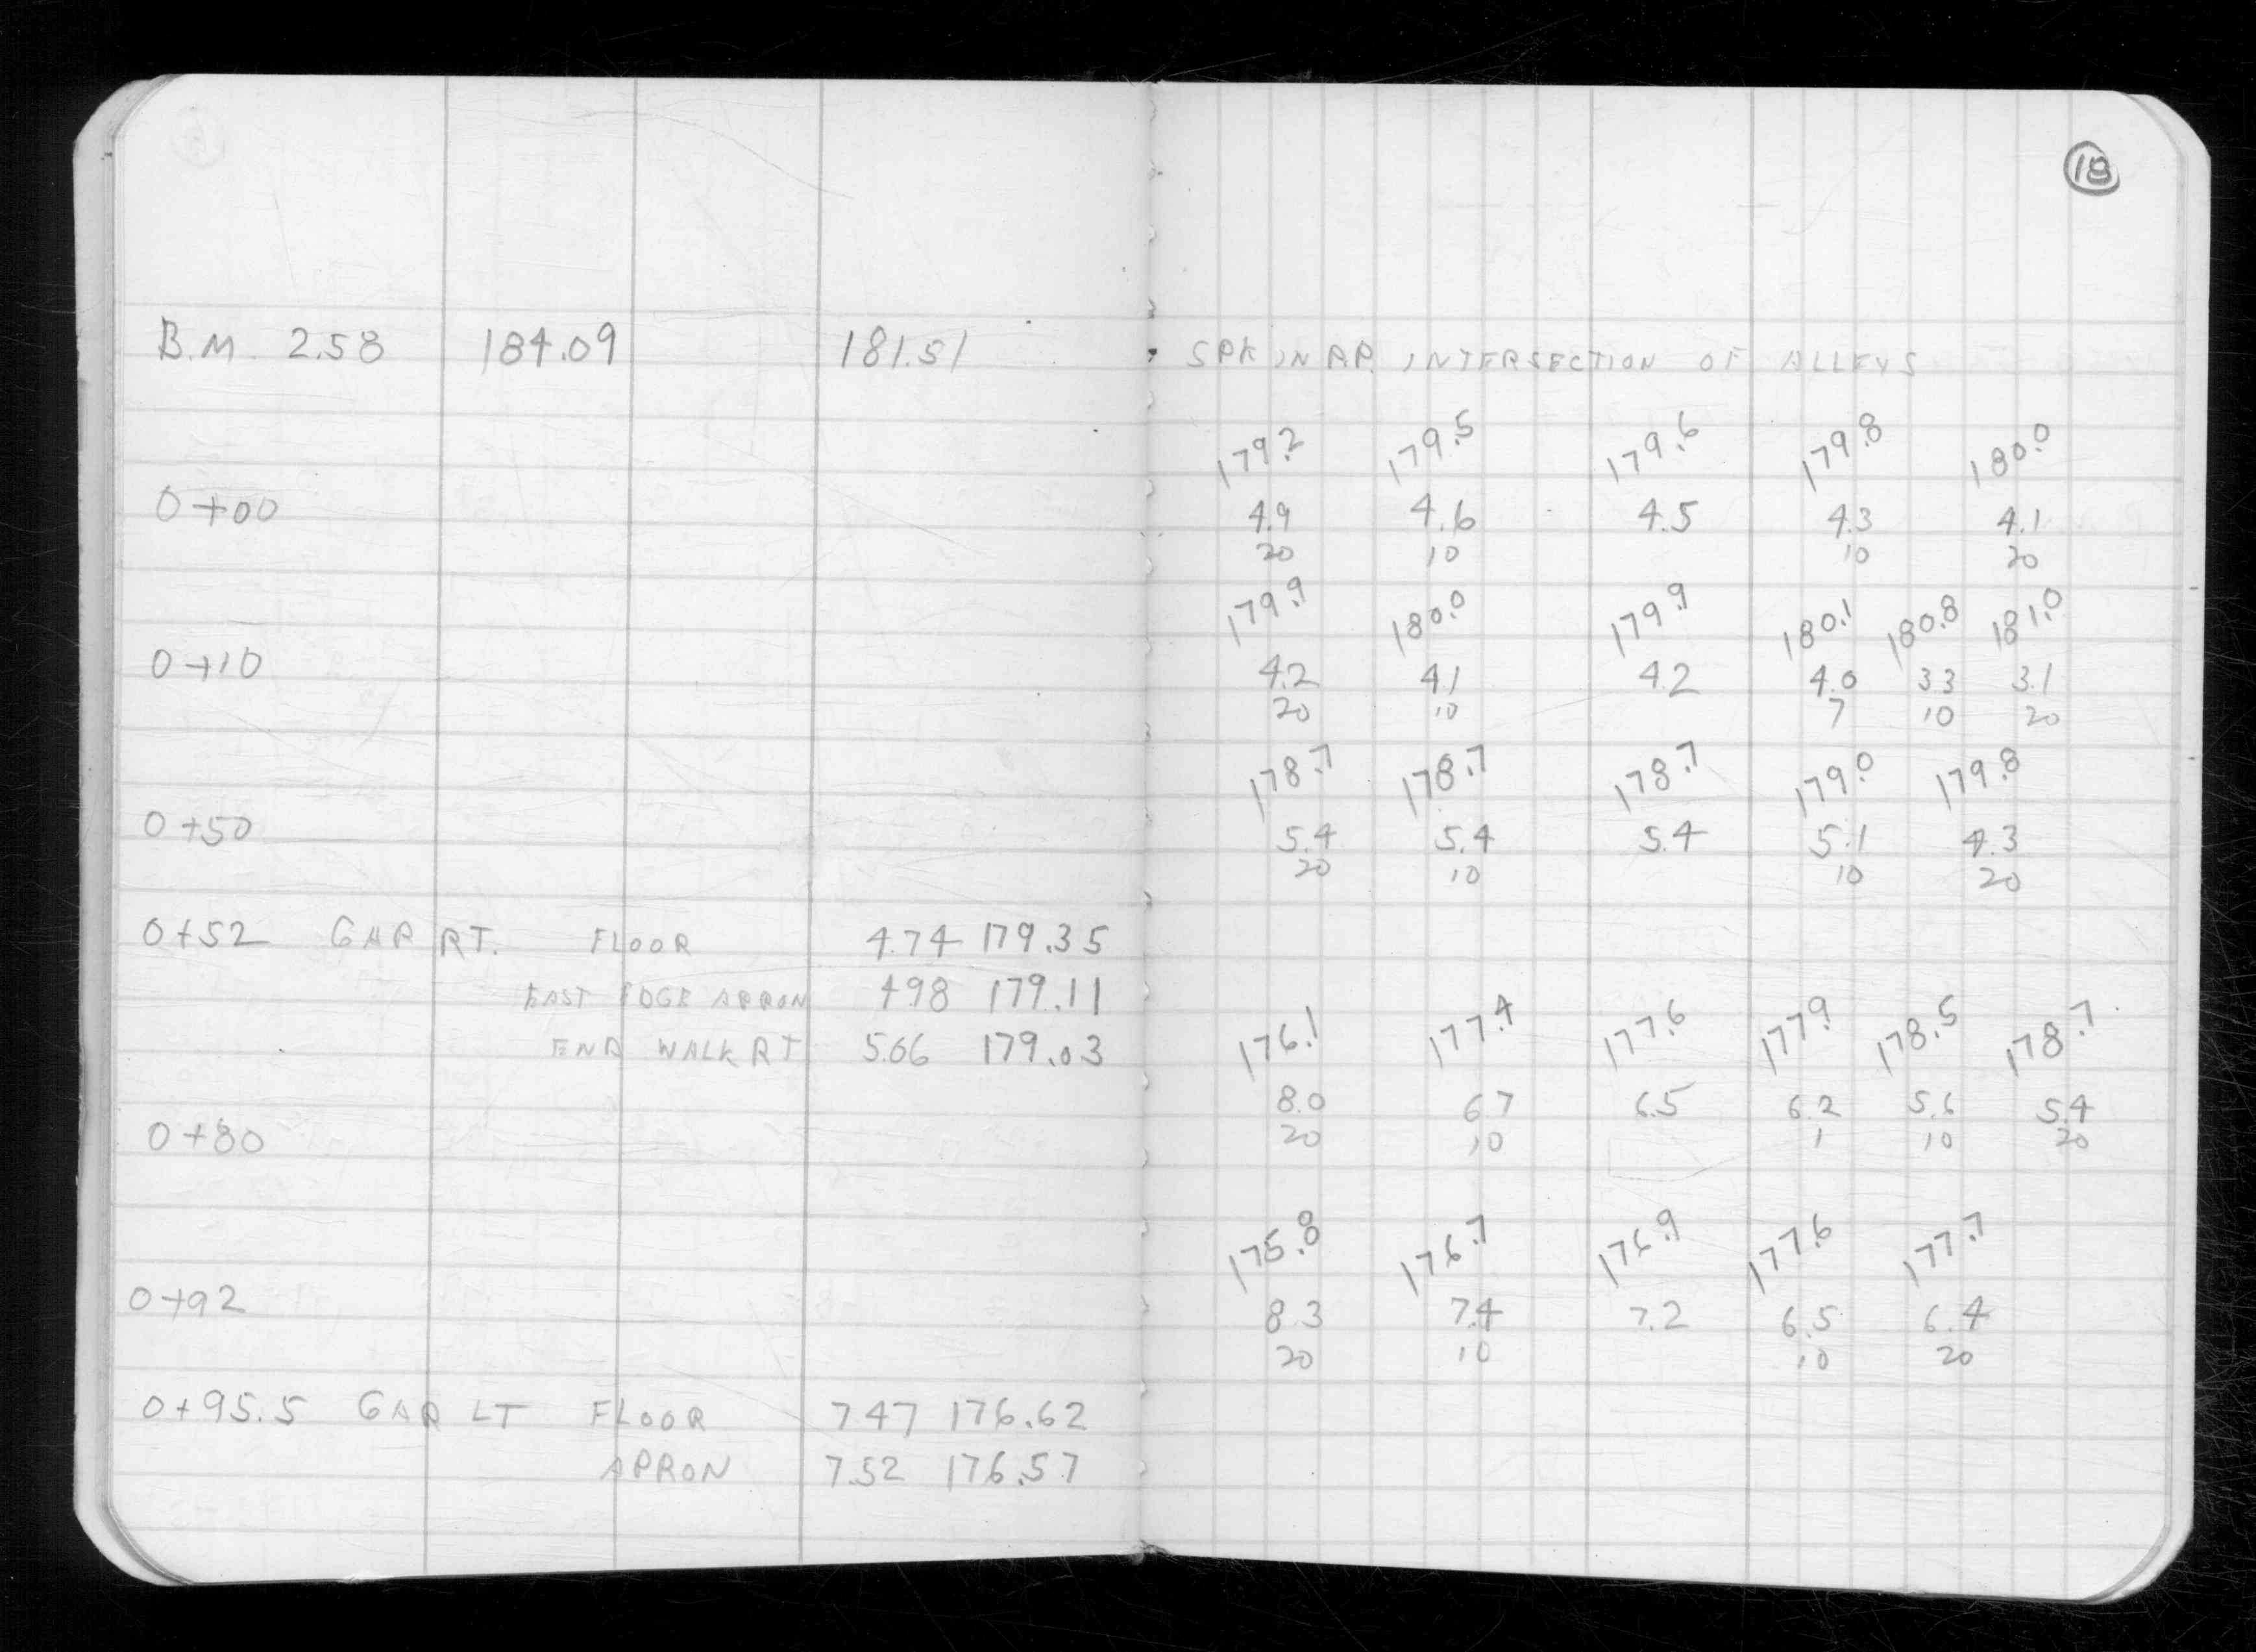 18
B.M. 2.58 184.09 181.51 SPK IN P.P. INTERSECTION OF ALLEYS
179.2 179.5 179.6 179.8 180.0
0+00 4.9 4.6 4.5 4.3 4.1
20 10 10 20
179.9 180.0 179.9 180.1 180.8 181.0
0+10 4.2 4.1 4.2 4.0 3.3 3.1
20 10 7 10 20
178.7 178.7 178.7 179.0 179.8
0+50 5.4 5.4 5.4 5.1 4.3
20 10 10 20
0+52 GAR RT. FLOOR 4.74 179.35
EAST EDGE APRON 4.98 179.11
END WALK RT 5.06 179.03
176.1 177.4 177.6 177.9 178.5 178.7
0+80 8.0 6.7 6.5 6.2 5.6 5.4
20 10 1 10 20
175.8 176.7 176.9 177.6 177.7
0+92 8.3 7.4 7.2 6.5 6.4
20 10 10 20
0+95.5 GAR LT FLOOR 7.47 176.62
APRON 7.52 176.57